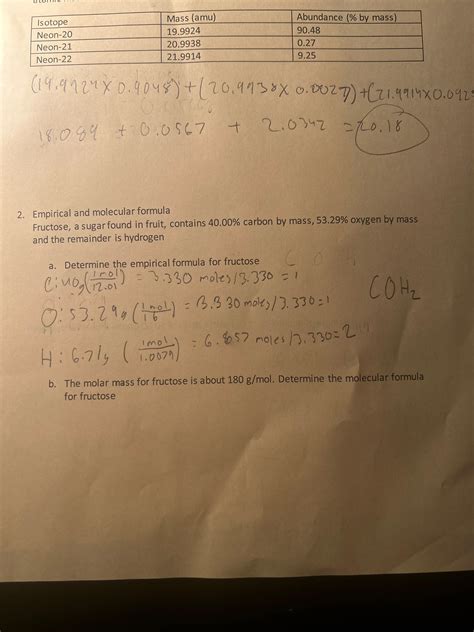 Isotope Mass (amu) Abundance (% by mass)
Neon-20 19.9924 90.48
Neon-21 20.9938 0.27
Neon-22 21.9914 9.25
(19.9924 X 0.9048) + (20.9938 X 0.0027) + (21.9914 X 0.092
18.089 + 0.0567 + 2.0342 = 20.18
2. Empirical and molecular formula
Fructose, a sugar found in fruit, contains 40.00% carbon by mass, 53.29% oxygen by mass
and the remainder is hydrogen
a. Determine the empirical formula for fructose
C: 40g (1mol/12.01) = 3.330 moles/3.330 = 1
COH2
O: 53.29g (1mol/16) = 3.330 moles/3.330 = 1
H: 6.71g (1mol/1.0079) = 6.657 moles/3.330 = 2
b. The molar mass for fructose is about 180 g/mol. Determine the molecular formula
for fructose